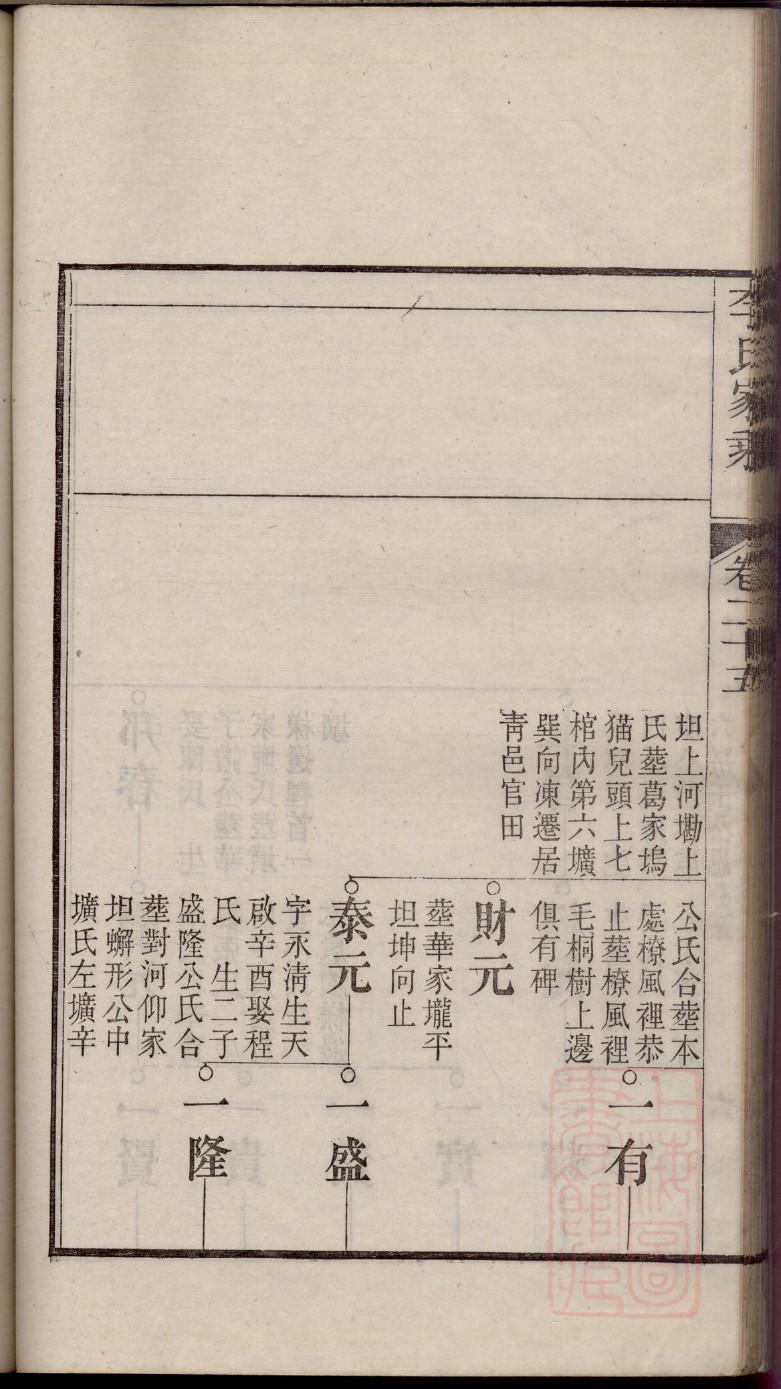 李氏家乘
卷二十五
坦上河墈上
氏塟葛家塢
猫兒頭上七
棺內第六壙
巽向凍遷居
靑邑官田
公氏合塟本
處橑風裡恭
止塟橑風裡
毛桐樹上邊
俱有碑
財元
塟華家壠平
坦坤向止
泰元
字永淸生天
啟辛酉娶程
氏 生二子
盛隆公氏合
塟對河仰家
坦蠏形公中
壙氏左壙辛
一有
一盛
一隆
上海圖書館藏